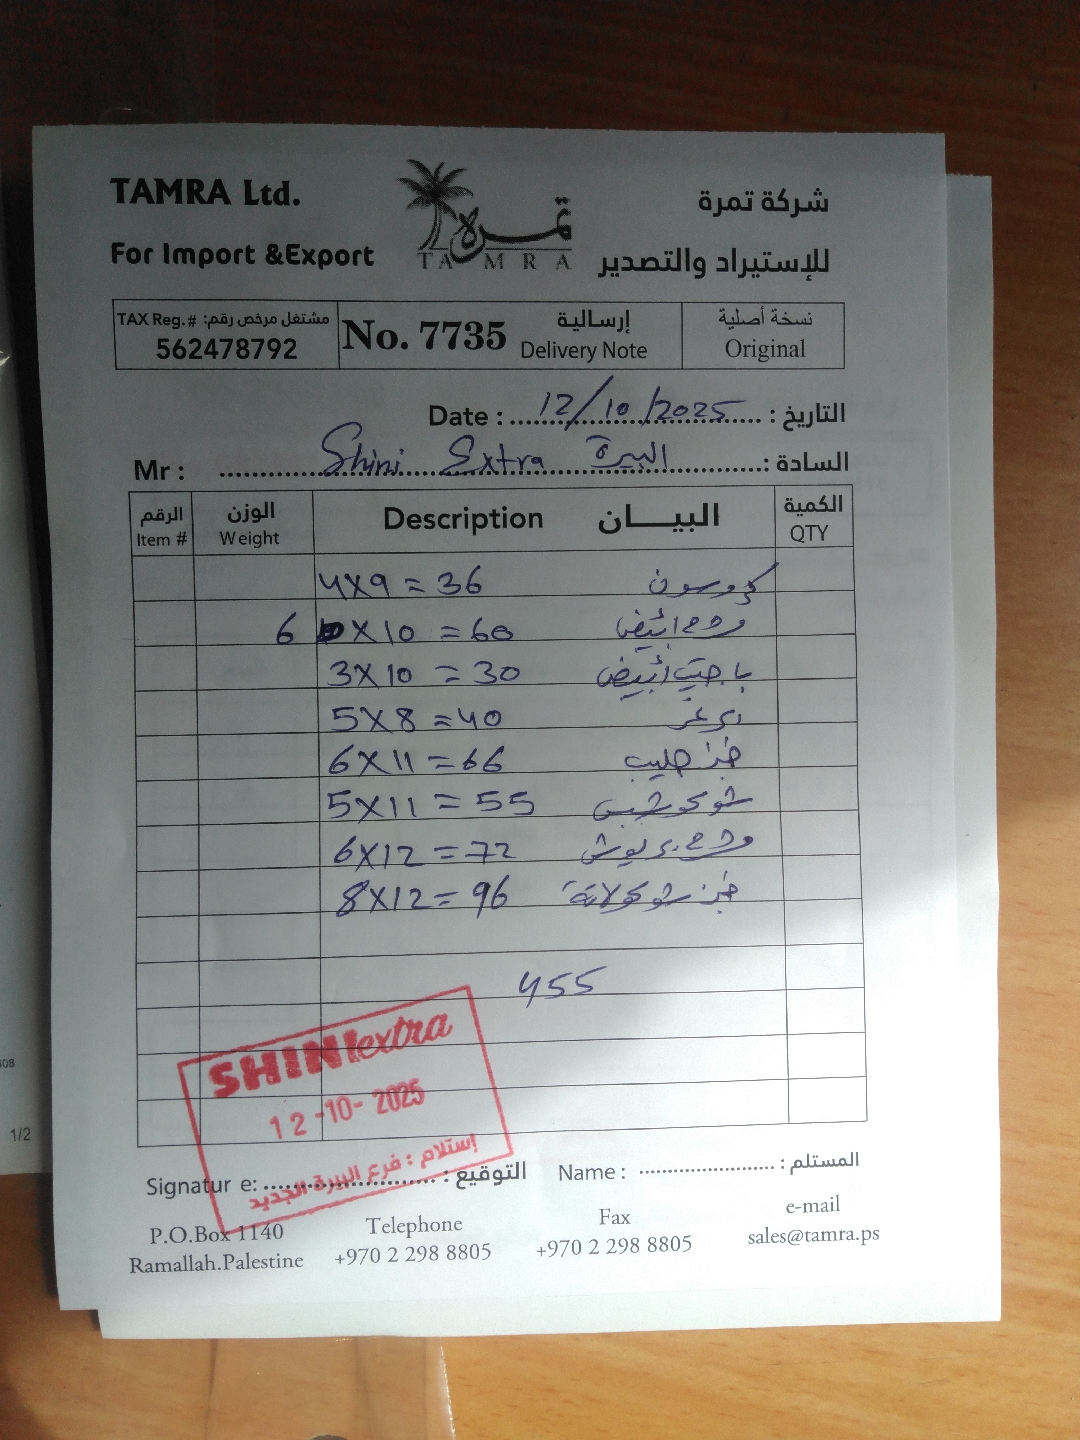 TAMRA Ltd.
For Import &Export
تمرة
TAMRA
شركة تمرة
للإستيراد والتصدير
TAX Reg. # مشتغل مرخص رقم:
562478792
No. 7735
إرسالية
Delivery Note
نسخة أصلية
Original
Date : 12/10/2025 التاريخ :
Mr : Shini Extra البيرة السادة :
الرقم الوزن Description البيـــان الكمية
Item # Weight QTY
4x9 = 36 كروسون
6 x 10 = 60 أبيض
3x10 = 30 باجيت أبيض
5x8 = 40 برغر
6x11 = 66 خبز حليب
5x11 = 55
6x12 = 72 بريوش
8x12 = 96 خبز شوكولاتة
455
SHINI extra
12-10-2025
إستلام : فرع البيرة الجديد
Signatur e: التوقيع : Name : المستلم :
P.O.Box 1140
Ramallah.Palestine
Telephone
+970 2 298 8805
Fax
+970 2 298 8805
e-mail
sales@tamra.ps
408
1/2